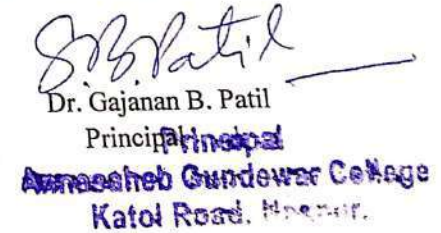 G.B.Patil
Dr. Gajanan B. Patil
Principal
Principal
Annasaheb Gundewar College
Katol Road, Nagpur.